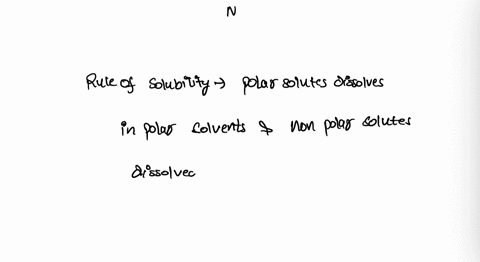 N
Rule of Solubility → polar solutes dissolves
in polar solvents & non polar solutes
dissolvec